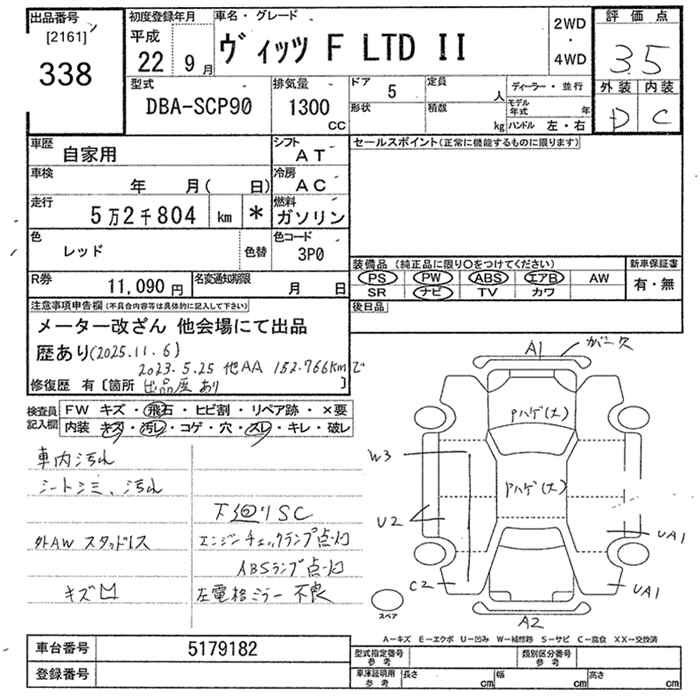 出品番号
[2161]
338
初度登録年月
平成
22 9月
車名・グレード
ヴィッツ F LTD II
2WD
・
4WD
評価点
3.5
外装 内装
D C
型式
DBA-SCP90
排気量
1300
CC
ドア
5
形状
定員
人
積数
kg
ディーラー・並行
モデル年式 年
ハンドル 左・右
車歴
自家用
シフト
AT
セールスポイント(正常に機能するものに限ります)
車検
年 月( 日)
冷房
AC
走行
5万2千804 km *
燃料
ガソリン
色
レッド
色替
色コード
3P0
装備品(純正品に限り○をつけてください)
PS PW ABS エアB AW
SR ナビ TV カワ
新車保証書
有・無
R券
11,090 円
名変通知期限
月 日
後日品
注意事項申告欄(不具合内容等は具体的に記入して下さい)
メーター改ざん 他会場にて出品
歴あり(2025.11.6)
2023.5.25 他AA 152.766kmで
修復歴 有[箇所 出品歴あり ]
検査員記入欄
FW キズ・飛石・ヒビ割・リペア跡・×要
内装 キズ・汚レ・コゲ・穴・スレ・キレ・破レ
車内汚れ
シートシミ、汚れ
下廻りSC
外AW スタッドレス
エンジンチェックランプ点灯
ABSランプ点灯
キズ凹
左電格ミラー 不良
A1
ガーケ
Pハゲ(大)
W3
Pハゲ(大)
U2
UA1
C2
UA1
A2
スペア
A-キズ E-エクボ U-凹み W-補修跡 S-サビ C-腐食 XX-交換済
車台番号
5179182
登録番号
型式指定番号
参考
類別区分番号
参考
車庫証明用
参考
長さ cm
幅 cm
高さ cm